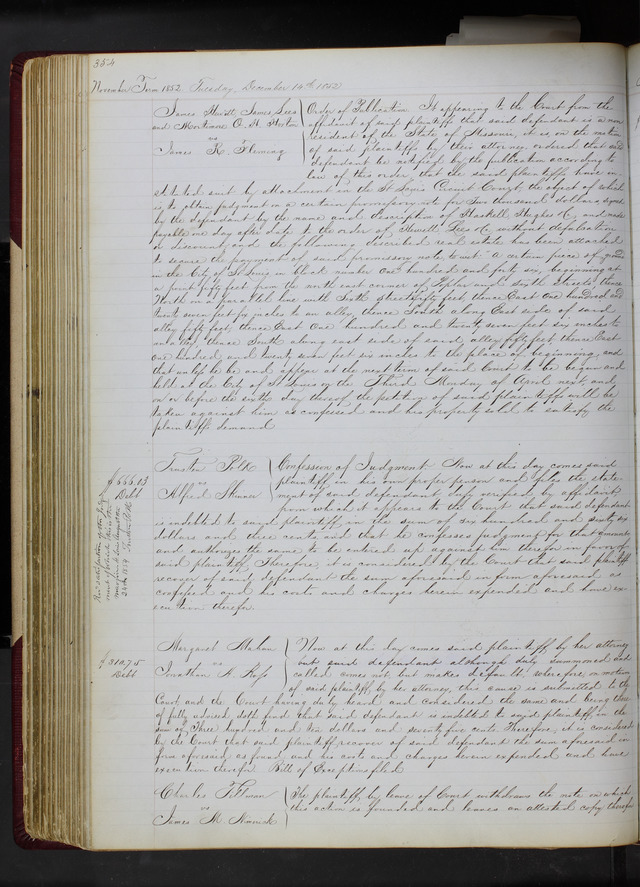 354
November Term 1852. Tuesday, December 14th 1852
James Hewitt, James Lees
and Mortimer O. H. Norton
vs
James R. Fleming
Order of Publication It appearing to the Court from the
affidavit of said plaintiff that said defendant is a non
resident of the State of Missouri, it is on the motion
of said plaintiffs by their attorney ordered that said
defendant be notified by the publication according to
law of this order, that the said plaintiffs have in
stituted suit by attachment in the St Louis Circuit Court, the object of which
is to obtain judgment on a certain promissory note for Two thousand dollars signed
by the defendant by the name and description of Haskell, Hughes & Co and made
payable one day after date to the order of Hewitt Lees & Co without defalcation
or discount, and the following described real estate has been attached
to secure the payment of said promissory note to wit. A certain piece of ground
in the City of St Louis, in block number one hundred and forty six, beginning at
a point fifty feet from the north east corner of Poplar and sixth Streets, thence
North on a parallel line with Sixth Street fifty feet, thence East One hundred and
twenty seven feet six inches to an alley, thence South along East side of said
alley fifty feet, thence East One hundred and twenty seven feet six inches to
an alley, thence South along east side of said alley fifty feet thence East
one hundred and twenty seven feet six inches to the place of beginning, and
that unless he be and appear at the next term of said Court to be begun and
held at the City of St Louis on the Third Monday of April next, and
on or before the sixth day thereof the petition of said plaintiffs will be
taken against him as confessed and his property sold to satisfy the
plaintiffs demand
$666.03
Debt
Trusten Polk
vs
Alfred Skinner
Confession of Judgment Now at this day comes said
plaintiff in his own proper person and files the state-
ment of said defendant duly verified by affidavit
from which it appears to the Court that said defendant
is indebted to said plaintiff in the sum of six hundred and sixty six
dollars and three cents and that he confesses judgment for that amount
and authorizes the same to be entered up against him therefor in favor of
said plaintiff, Therefore, it is considered by the Court that said plaintiff
recover of said defendant the sum aforesaid in form aforesaid as
confessed and his costs and charges herein expended and have ex-
ecution therefor.
$310.75
Debt
Margaret Mahan
vs
Jonathan N.
Now at this day comes said plaintiff by her attorney
but said defendant although duly summoned and
called comes not but makes default, wherefore, on motion
of said plaintiff, by her attorney, this cause is submitted to the
Court, and the Court having duly heard and considered the same and being there
of fully advised doth find that said defendant is indebted to said plaintiff in the
sum of Three hundred and ten dollars and seventy five cents Therefore, it is considered
by the Court that said plaintiff recover of said defendant the sum aforesaid in
form aforesaid as found, and his costs and charges herein expended and have
execution therefor. Bill of Exceptions filed
Charles
vs
James M.
The plaintiff by leave of Court withdraws the note on which
this action is founded and leaves an attested copy thereof